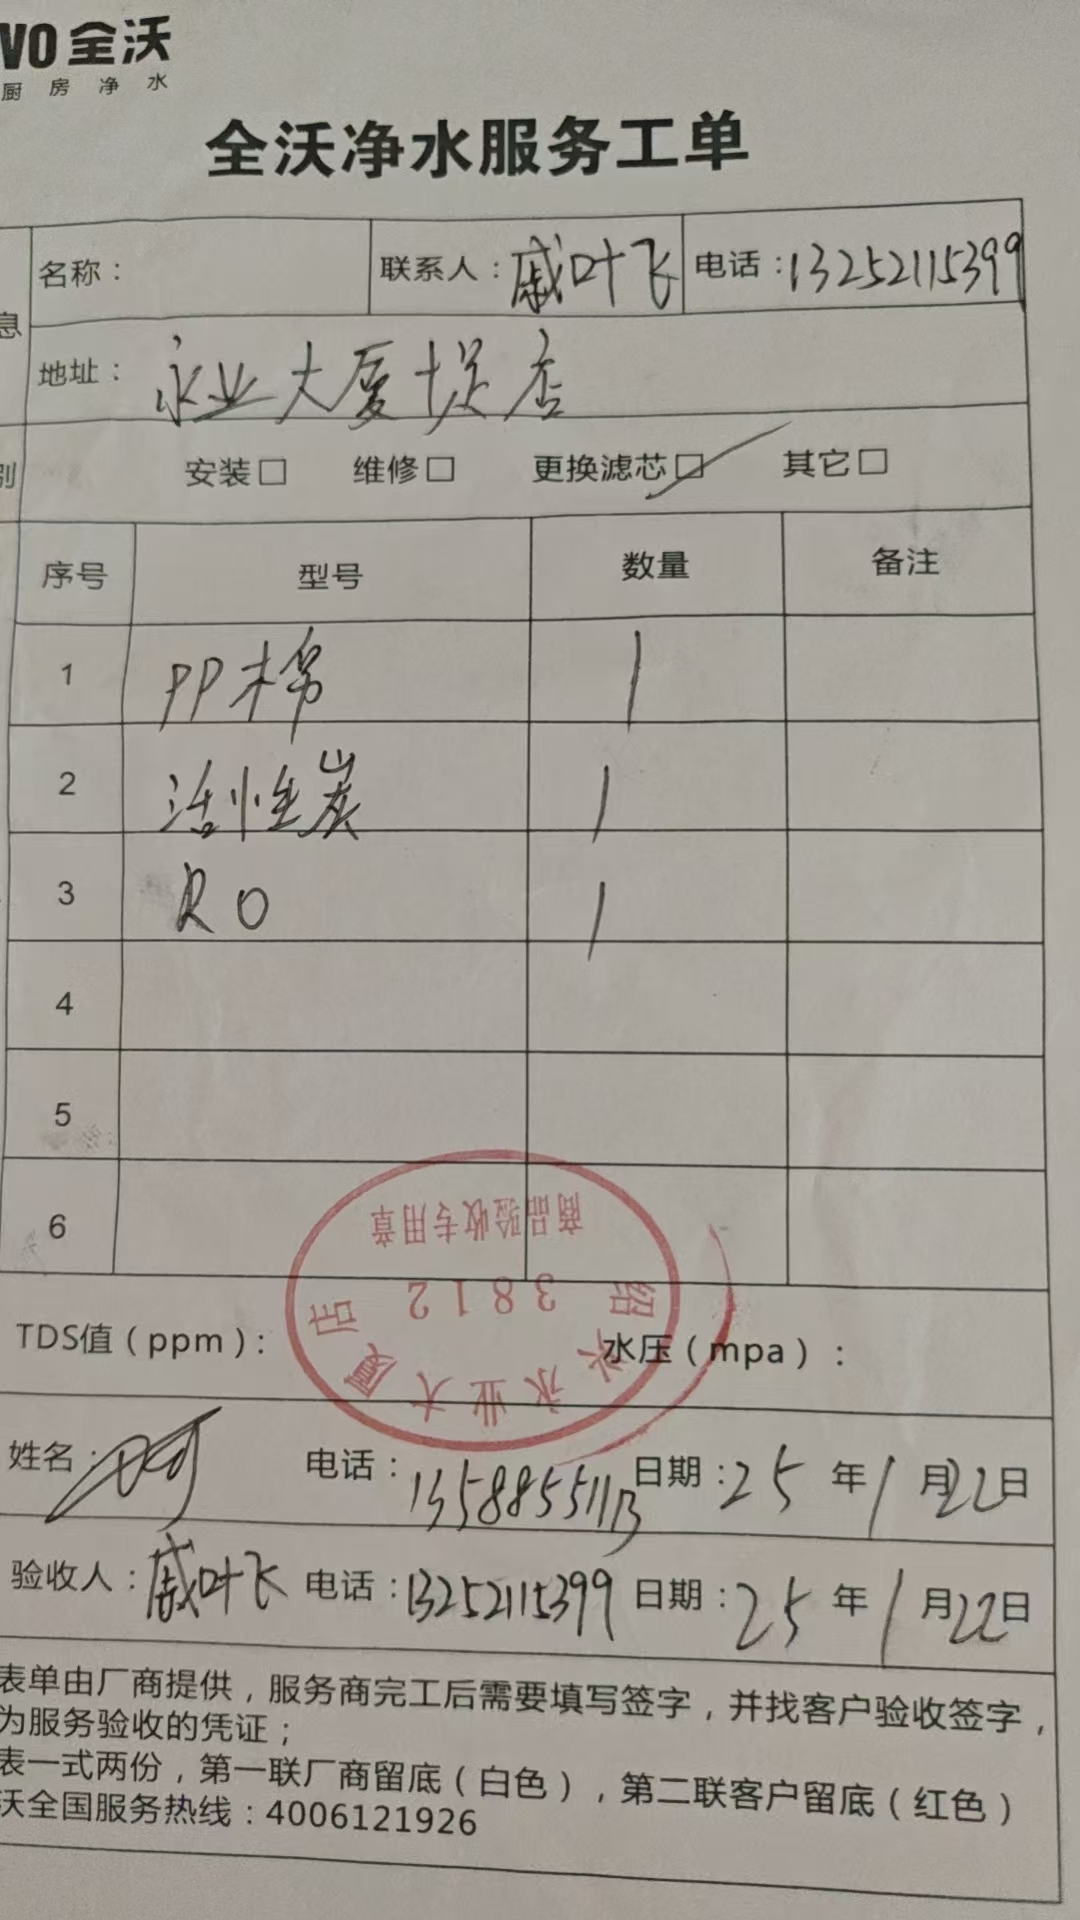 VO全沃
厨房净水
全沃净水服务工单
息
名称： 联系人：戚叶飞 电话：13252115399
地址：永业大厦 店
别
安装□ 维修□ 更换滤芯□ 其它□
序号 型号 数量 备注
1 PP棉 1
2 活性炭 1
3 RO 1
4
5
6
商品验收专用章
3812
绍兴永业大厦店
TDS值（ppm）： 水压（mpa）：
姓名： 电话：13588551113 日期：25年1月22日
验收人：戚叶飞 电话：13252115399 日期：25年1月22日
表单由厂商提供，服务商完工后需要填写签字，并找客户验收签字，
为服务验收的凭证；
表一式两份，第一联厂商留底（白色），第二联客户留底（红色）
沃全国服务热线：4006121926